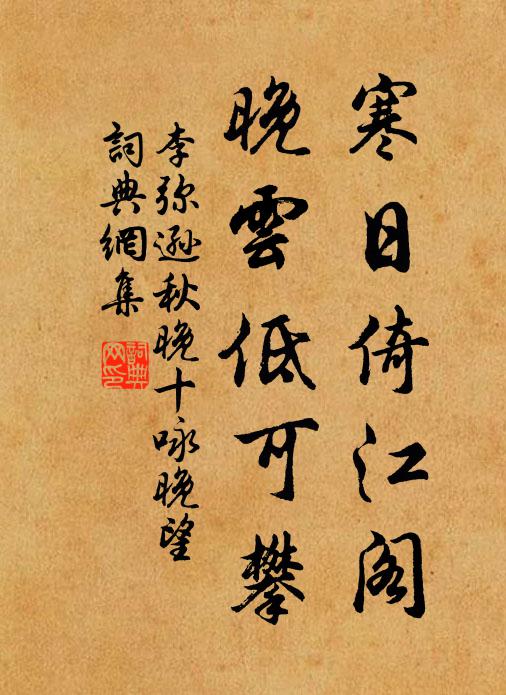 寒日倚江阁
晚雲低可攀
李弥遜秋晚十咏晚望
詞典網集
詞典网印